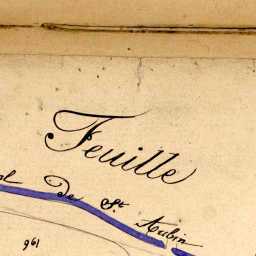 Feuille
de St. Aubin
196